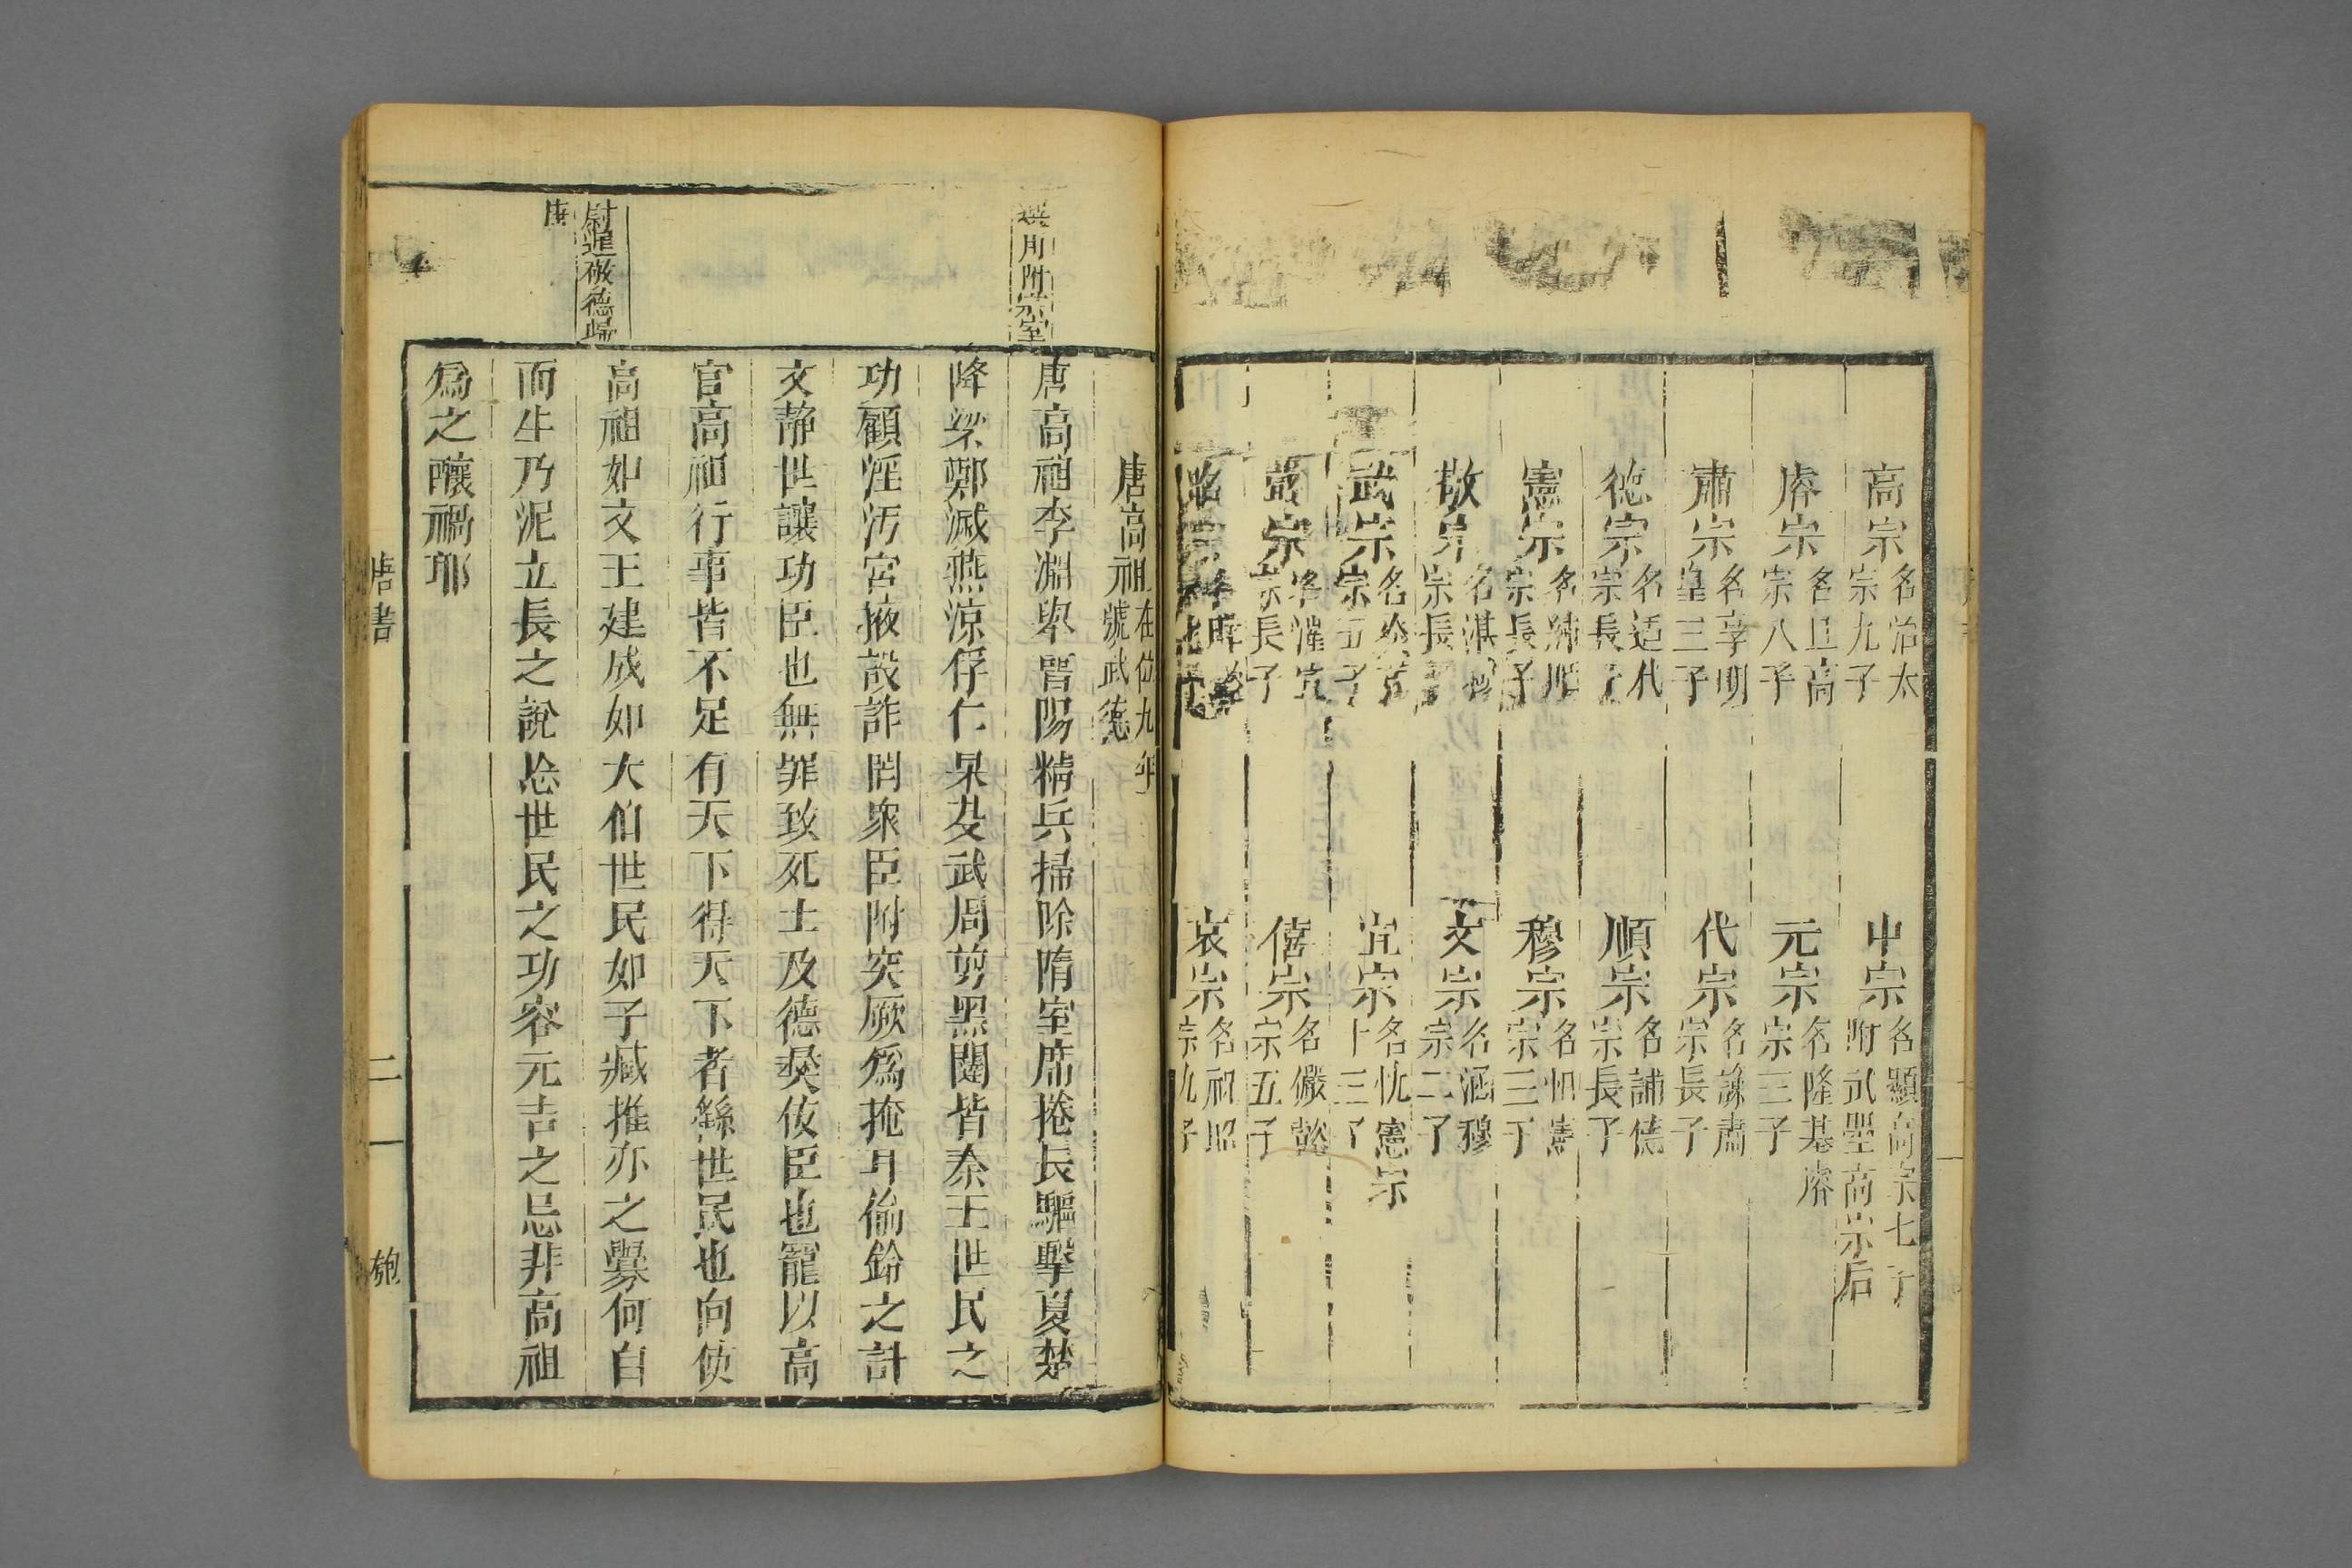 高宗名治太宗九子
中宗名顯高宗七子附武曌高宗后
睿宗名旦高宗八子
元宗名隆基睿宗三子
肅宗名亨明皇三子
代宗名豫肅宗長子
德宗名适代宗長子
順宗名誦德宗長子
憲宗名純順宗長子
穆宗名恒憲宗三子
敬宗名湛穆宗長子
文宗名涵穆宗二子
武宗名炎穆宗五子
宣宗名忱憲宗十三子
懿宗名漼宣宗長子
僖宗名儼懿宗五子
昭宗
哀宗名祝昭宗九子
唐高祖在位九年號武德
唐高祖李淵舉晉陽精兵掃除隋室席捲長驅擊夏楚
降梁鄭滅燕涼俘仁杲及武周剪黑闥皆秦王世民之
功顧淫污宮掖設詐罔衆臣附突厥爲掩耳偷鈴之計
文靜世讓功臣也無罪致死士及德彝佞臣也寵以高
官高祖行事皆不足有天下得天下者繇世民也向使
高祖如文王建成如大伯世民如子臧推亦之釁何自
而生乃泥立長之說忘世民之功容元吉之忌非高祖
爲之釀禍耶
選用附宗室
尉遲敬德歸
唐
唐書
二